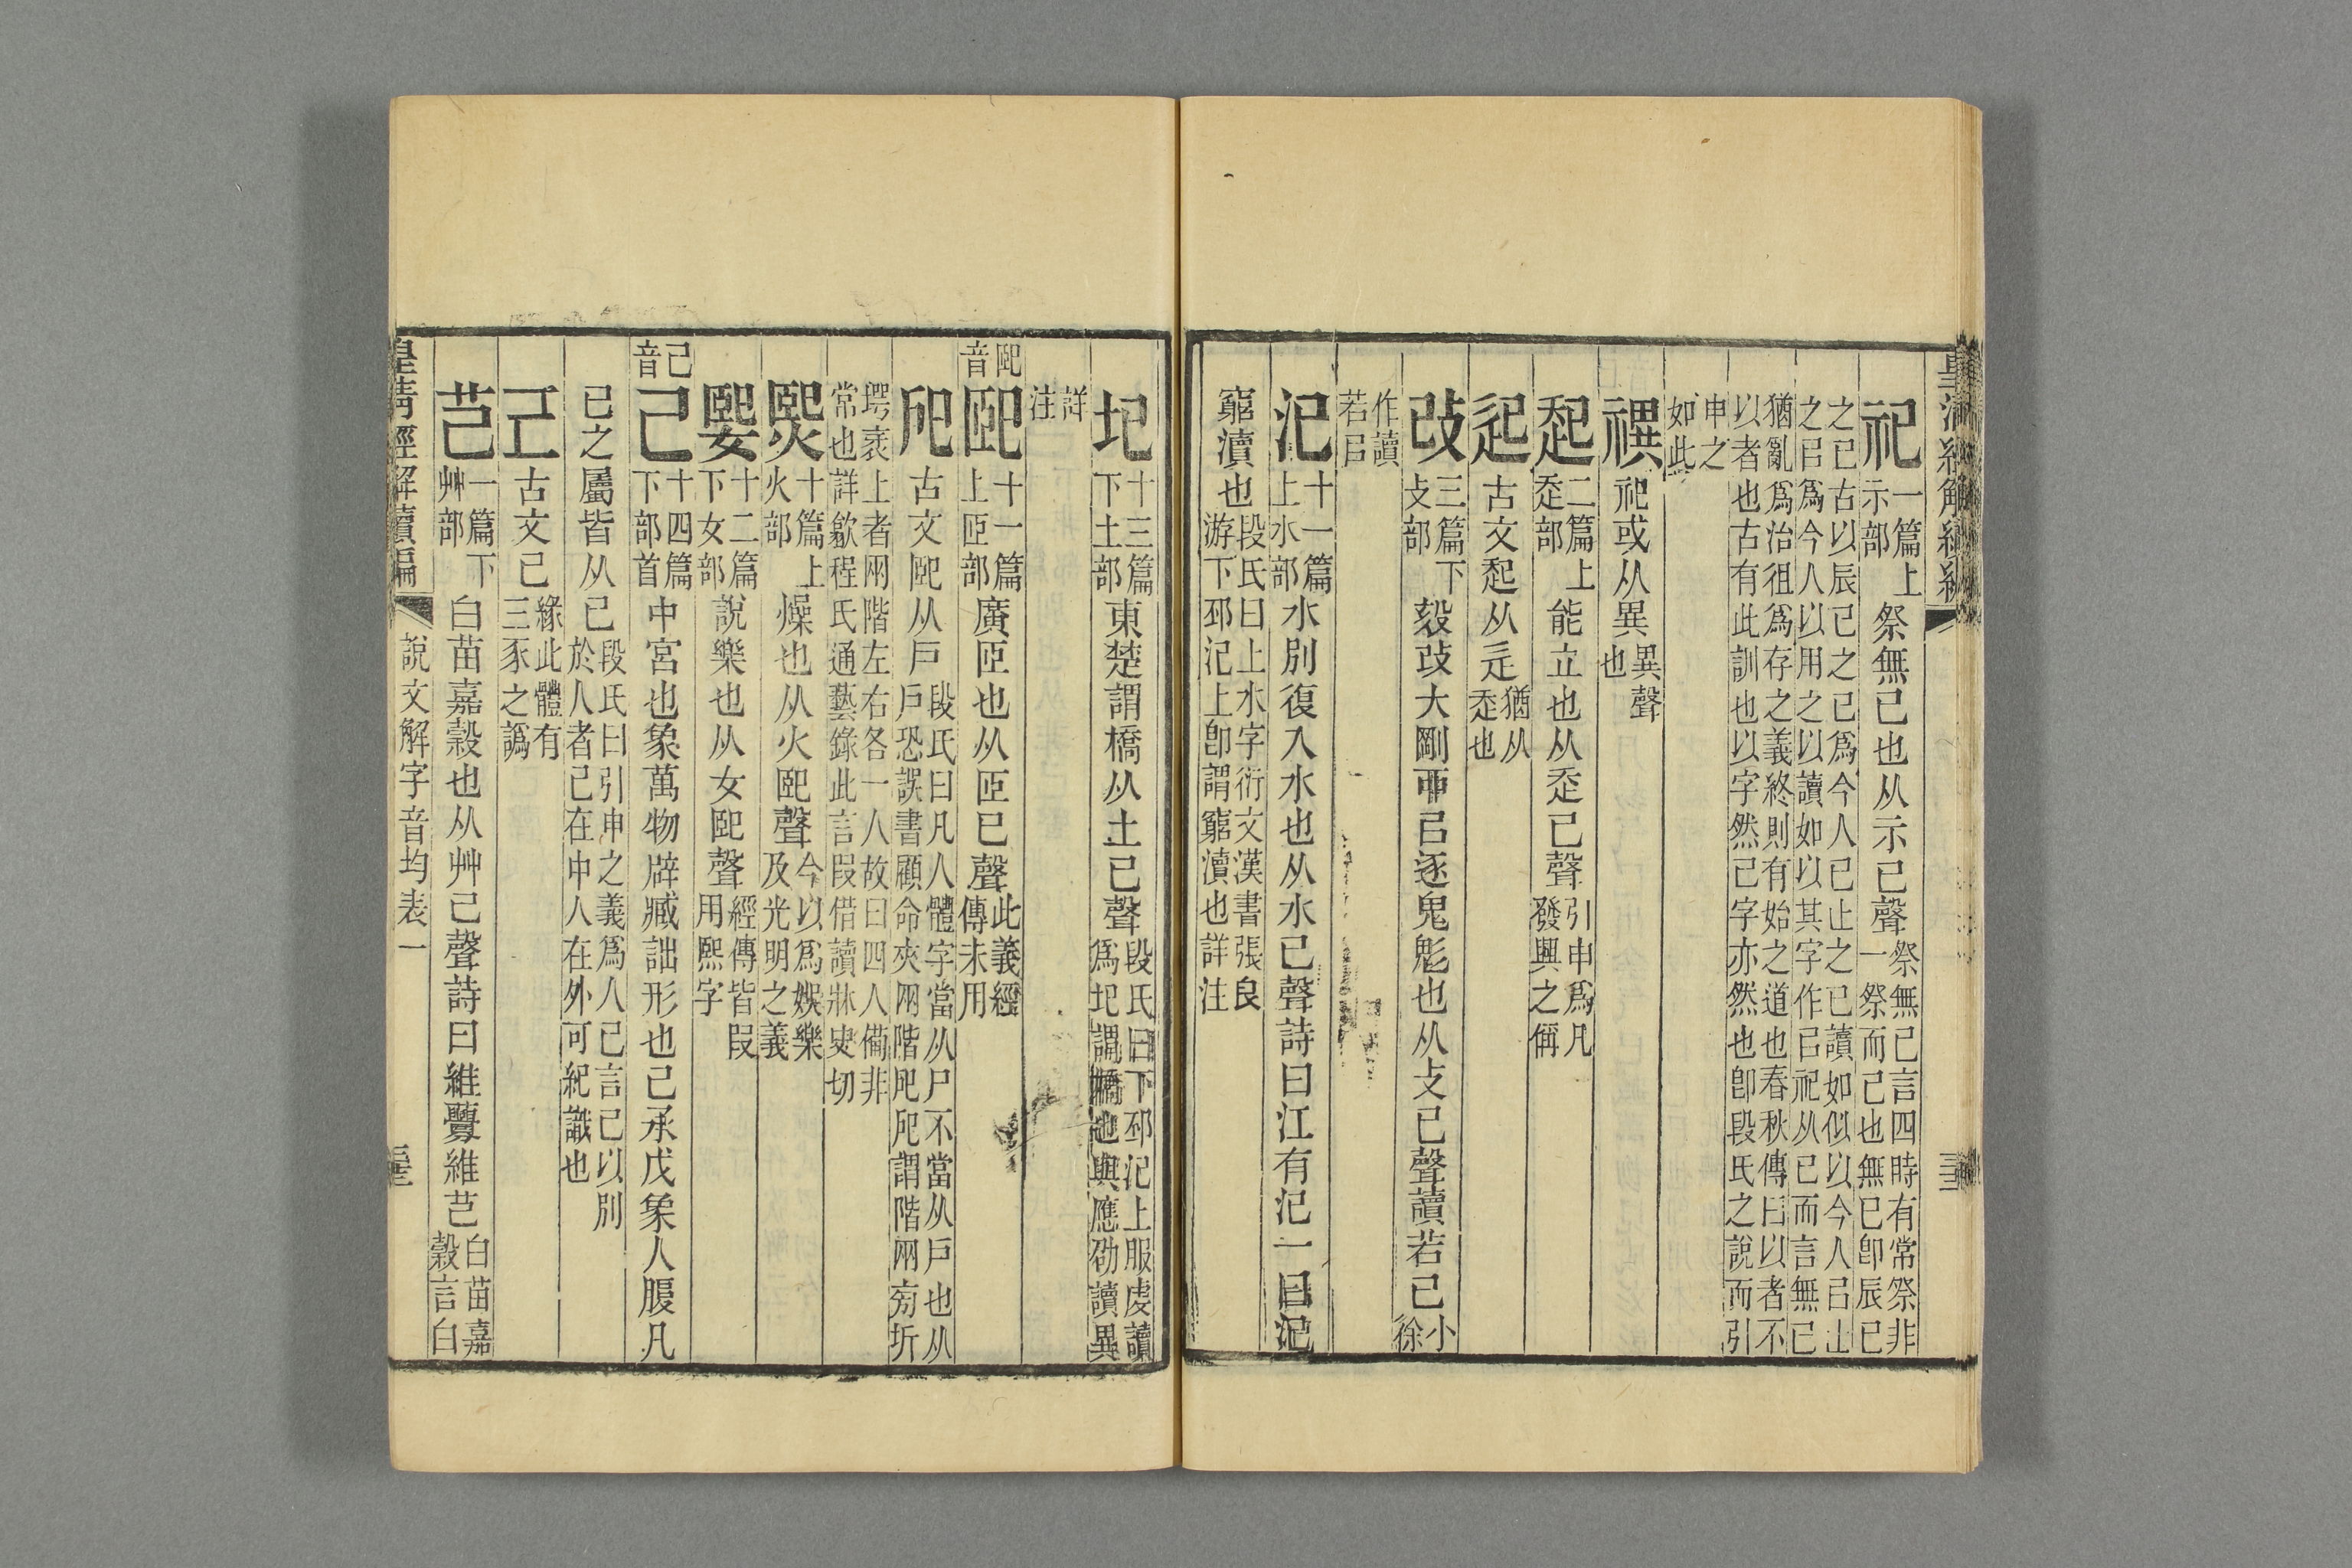 祀一篇上示部祭無已也从示巳聲祭無已言四時有常祭非一祭而已也無已卽辰巳
之巳古以辰巳之巳爲今人已止之已讀如似以今人㠯止之㠯爲今人以用之以讀如以其字作㠯祀从巳而言無已
猶亂爲治徂爲存之義終則有始之道也春秋傳曰以者不以者也古有此訓也以字然已字亦然也卽段氏之說而引
申之如此
禩祀或从異異聲也
起二篇上走部能立也从走巳聲引申爲凡發興之偁
𨑔古文起从辵猶从走也
攺三篇下攴部毅攺大剛丣㠯逐鬼鬽也从攴巳聲讀若巳小徐
作讀若㠯
汜十一篇上水部水別復入水也从水巳聲詩曰江有汜一曰汜
窮瀆也段氏曰上水字衍文漢書張良游下邳汜上卽謂窮瀆也詳注
圯十三篇下土部東楚謂橋从土巳聲段氏曰下邳汜上服虔讀爲圯謂橋也與應劭讀異
詳注
巸音巸十一篇上𦣞部廣𦣞也从𦣞巳聲此義經傳未用
戺古文巸从戶段氏曰凡人體字當从尸不當从戶也从戶恐誤書顧命夾兩階戺戺謂階兩旁斫
堮衺上者兩階左右各一人故曰四人備非常也詳歙程氏通藝錄此言叚借讀牀史切
熙十篇上火部燥也从火巸聲今以爲娛樂及光明之義
媐十二篇下女部說樂也从女巸聲經傳皆叚用熙字
己音己十四篇下部首中宮也象萬物辟臧詘形也己承戊象人腹凡
己之屬皆从己段氏曰引申之義爲人己言己以別於人者己在中人在外可紀識也
𢀒古文己緣此體有三豕之譌
芑一篇下艸部白苗嘉穀也从艸己聲詩曰維虋維芑白苗嘉穀言白
皇清經解續編 說文解字音均表一